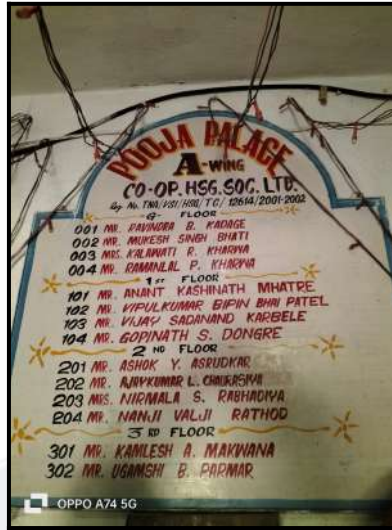 POOJA PALACE
A-WING
CO-OP. HSG. SOC. LTD.
Reg No. TNA/VSI/HSG/TC/12614/2001-2002
G- FLOOR
001 MR. RAVINDRA B. KADAGE
002 MR. MUKESH SINGH BHATI
003 MRS. KALAWATI R. KHARWA
004 MR. RAMANLAL P. KHARWA
1ST FLOOR
101 MR. ANANT KASHINATH MHATRE
102 MR. VIPULKUMAR BIPIN BHAI PATEL
103 MR. VIJAY SADANAND KARBELE
104 MR. GOPINATH S. DONGRE
2 ND FLOOR
201 MR. ASHOK Y. ASRUDKAR
202 MR. AJAYKUMAR L. CHAURASIYA
203 MRS. NIRMALA S. RABHADIYA
204 MR. NANJI VALJI RATHOD
3 RD FLOOR
301 MR. KAMLESH A. MAKWANA
302 MR. UGAMSHI B. PARMAR
OPPO A74 5G